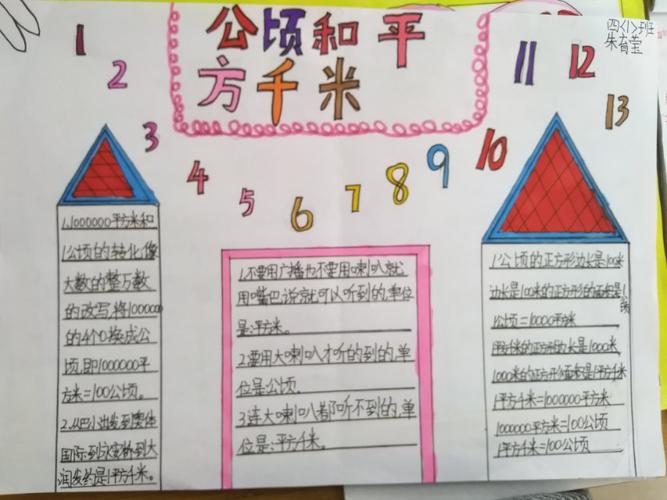 公顷和平
方千米
四<1>班
朱育莹
1 2 3 4 5 6 7 8 9 10 11 12 13
1.1000000平方米和
1公顷的转化,像
大数的整万数
的改写,将1000000
的4个0换成公
顷,即1000000平
方米=100公顷。
国际到永安桥到大
润发约是1平方千米。
1.不要用广播也不要用喇叭就
用嘴巴说就可以听到的,单位
是:平方米。
2.要用大喇叭才听的到的,单
位是:公顷。
3.连大喇叭都听不到的,单
位是:平方千米。
1公顷的正方形边长是100米
边长是100米的正方形的面积是1公顷
1公顷=10000平方米
1平方千米的正方形边长是1000米,
1000米的正方形面积是1平方千米
1平方千米=1000000平方米
1000000平方米=100公顷
1平方千米=100公顷